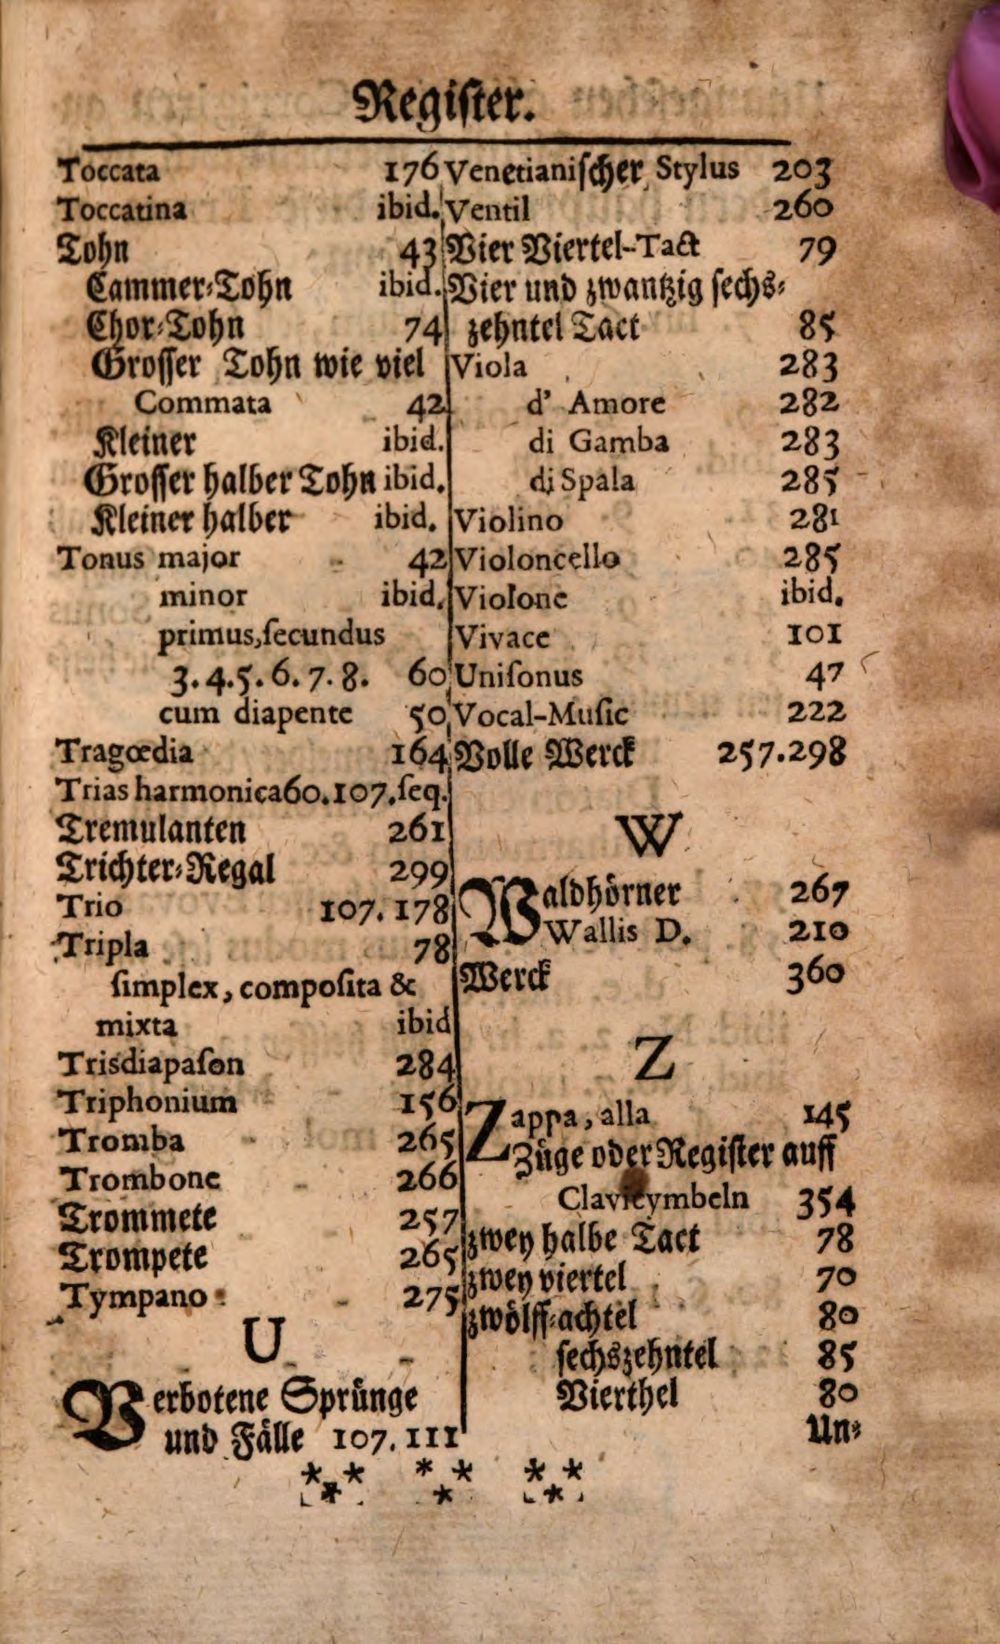 Regiſter.
Toccata 176
Toccatina ibid.
Tohn 43
Cammer⸗Tohn ibid.
Chor⸗Tohn 74
Groſſer Tohn wie viel
Commata 42
Kleiner ibid.
Groſſer halber Tohn ibid.
Kleiner halber ibid.
Tonus major - 42
minor ibid.
primus,ſecundus
3.4.5.6.7.8. 60
cum diapente 50
Tragœdia 164
Trias harmonica 60.107.ſeq.
Tremulanten 261
Trichter⸗Regal 299
Trio 107.178
Tripla 78
ſimplex, compoſita &
mixta ibid
Trisdiapaſon 284
Triphonium 156
Tromba - 265
Trombone - 266
Trommete 257
Trompete 265
Tympano - 275
U
Verbotene Sprünge
und Fälle 107.111
Venetianiſcher Stylus 203
Ventil 260
Vier Viertel-Tact 79
Vier und zwantzig ſechs⸗
zehntel Tact 85
Viola 283
d' Amore 282
di Gamba 283
di Spala 285
Violino 281
Violoncello 285
Violone ibid.
Vivace 101
Uniſonus 47
Vocal-Muſic 222
Volle Werck 257.298
W
Waldhörner 267
Wallis D. 210
Werck 360
Z
Zappa, alla 145
Züge oder Regiſter auff
Clavicymbeln 354
zwey halbe Tact 78
zwey viertel 70
zwölff⸗achtel 80
ſechszehntel 85
Vierthel 80
Un⸗
* * * * * *
* * *